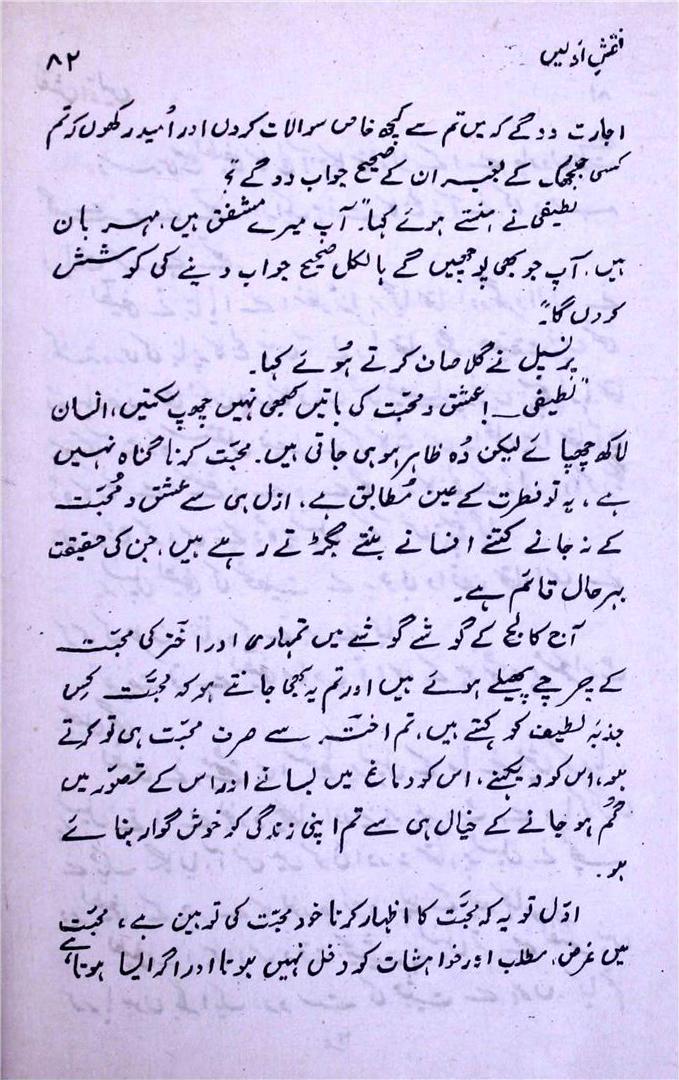 نقشِ اوّلیں
۸۲
اجازت دو گے کہ میں تم سے کچھ خاص سوالات کردں اور اُمید رکھوں کہ تم
کسی جھجھک کے بغیر ان کے صحیح جواب دو گے؟
لطیفی نے ہنستے ہوئے کہا۔ ”آپ میرے مشفق ہیں، مہربان
ہیں، آپ جو بھی پوچھیں گے بالکل صحیح جواب دینے کی کوشش
کروں گا۔“
پرنسپل نے گلا صاف کرتے ہُوئے کہا۔
”لطیفی۔ ! عشق و محبّت کی باتیں کبھی نہیں چھپ سکتیں، انسان
لاکھ چھپائے لیکن وُہ ظاہر ہو ہی جاتی ہیں۔ محبّت کرنا گناہ نہیں
ہے، یہ تو فطرت کے عین مُطابق ہے، ازل ہی سے عشق و مُحبّت
کے نہ جانے کتنے افسانے بنتے بگڑتے رہے ہیں، جن کی حقیقت
بہرحال قائم ہے۔
آج کالج کے گوشے گوشے میں تمہاری اور اختر کی محبّت
کے چرچے پھیلے ہوئے ہیں اور تم یہ بھی جانتے ہو کہ مُحبّت کِس
جذبۂ لطیف کو کہتے ہیں، تم اختر سے صرف محبّت ہی تو کرتے
ہو، اس کو دیکھنے، اس کو دماغ میں بسانے اور اس کے تصوّر میں
گُم ہو جانے کے خیال ہی سے تم اپنی زندگی کو خوش گوار بنائے
ہو۔
اوّل تو یہ کہ محبّت کا اظہار کرنا خود محبّت کی توہین ہے، محبّت
میں غرض، مطلب اور خواہشات کو دخل نہیں ہوتا اور اگر ایسا ہوتا ہے